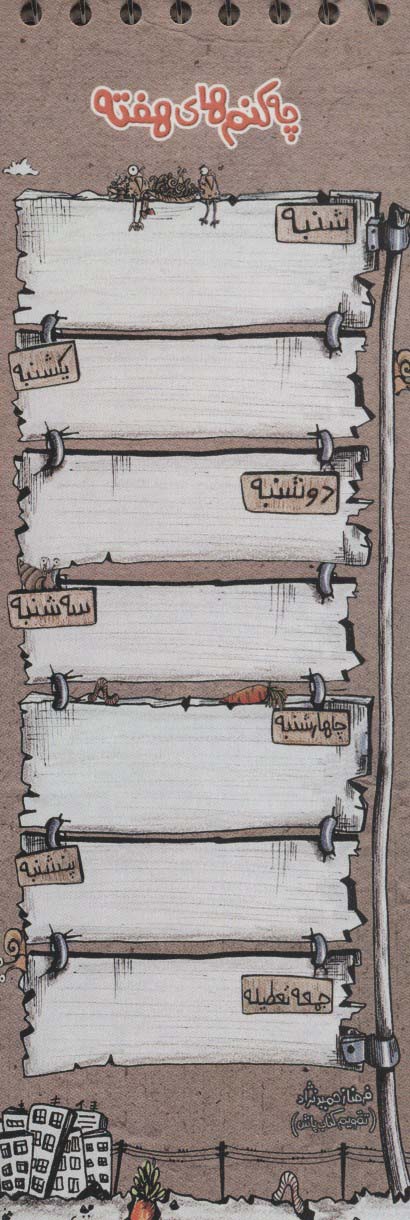 چه کنم های هفته
شنبه
یکشنبه
دوشنبه
سه شنبه
چاهارشنبه
پنشنبه
جمعه تعطیله
فرهناز حمیدنژاد
(تقویم کتاب باش)